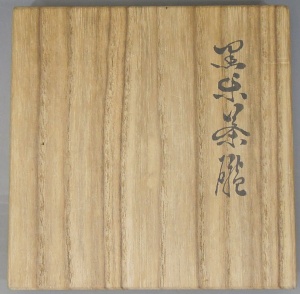 黒楽茶碗